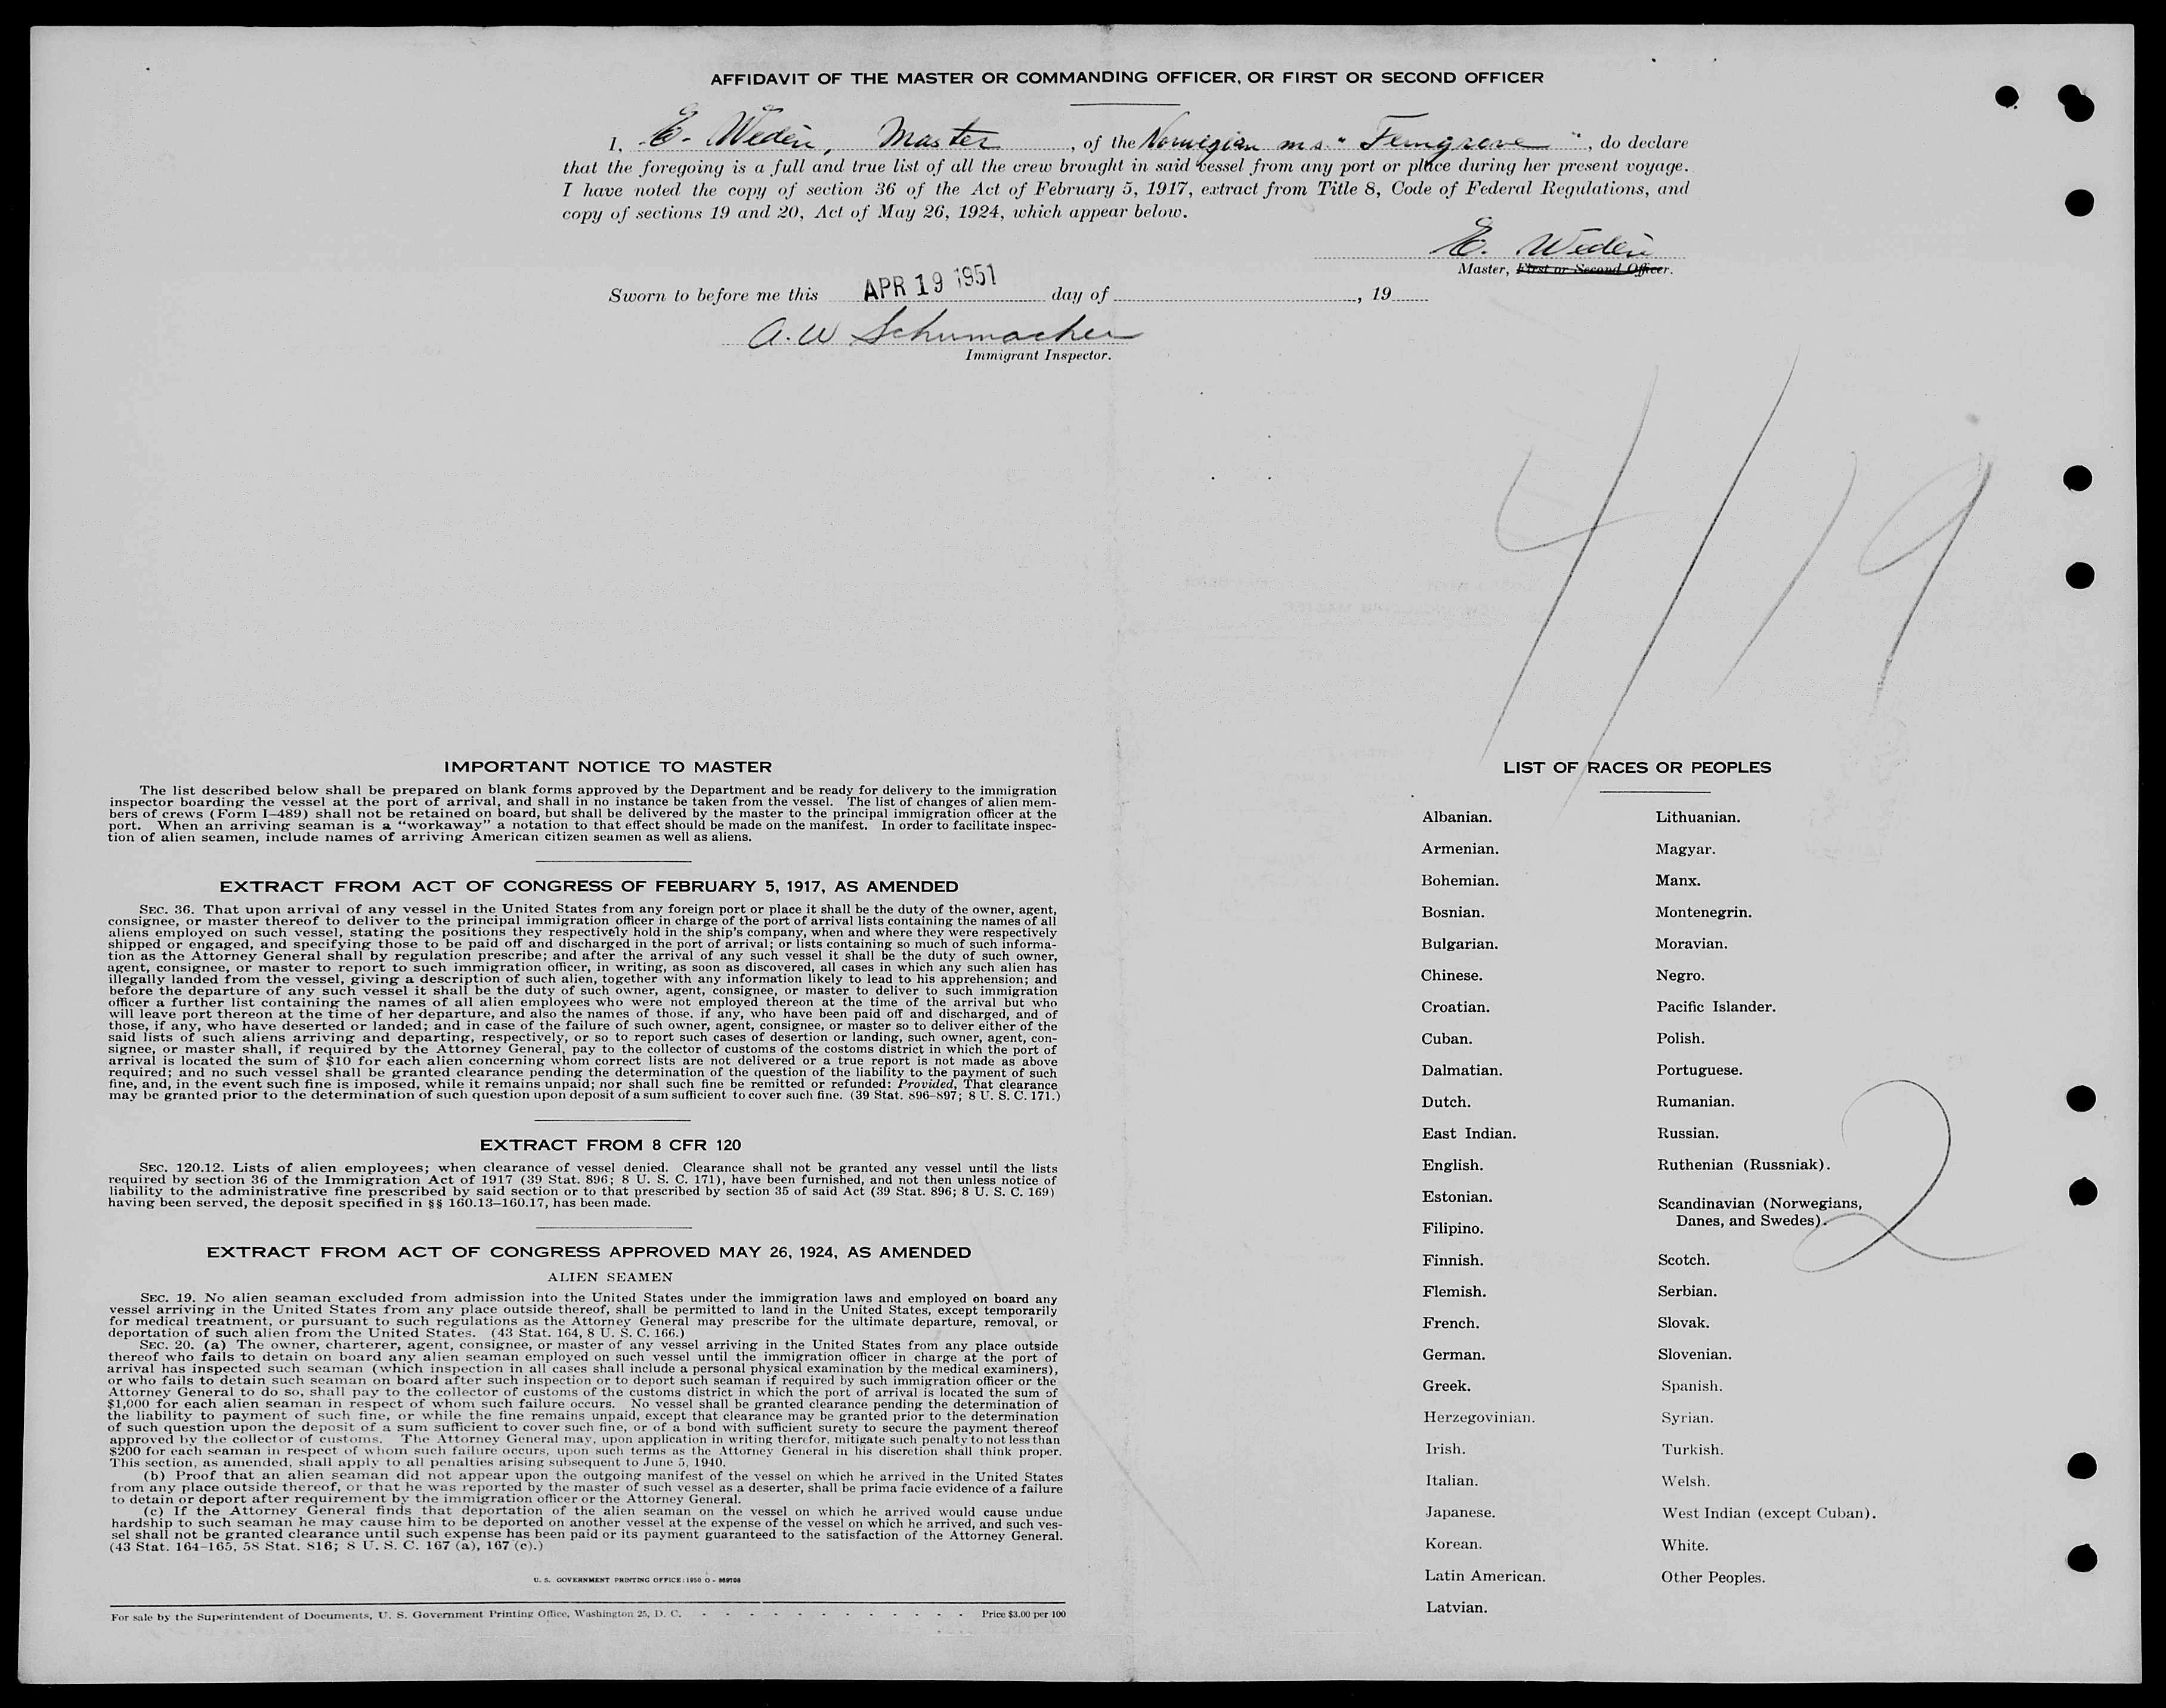 AFFIDAVIT OF THE MASTER OR COMMANDING OFFICER, OR FIRST OR SECOND OFFICER
I, E. Weden, Master, of the Norwegian m.s. " Ferngrove ", do declare
that the foregoing is a full and true list of all the crew brought in said vessel from any port or place during her present voyage.
I have noted the copy of section 36 of the Act of February 5, 1917, extract from Title 8, Code of Federal Regulations, and
copy of sections 19 and 20, Act of May 26, 1924, which appear below.
E. Weden
Master, First or Second Officer.
Sworn to before me this APR 19 1951 day of , 19
A. W Schumacher
Immigrant Inspector.
4/19
IMPORTANT NOTICE TO MASTER
The list described below shall be prepared on blank forms approved by the Department and be ready for delivery to the immigration
inspector boarding the vessel at the port of arrival, and shall in no instance be taken from the vessel. The list of changes of alien mem-
bers of crews (Form I-489) shall not be retained on board, but shall be delivered by the master to the principal immigration officer at the
port. When an arriving seaman is a "workaway" a notation to that effect should be made on the manifest. In order to facilitate inspec-
tion of alien seamen, include names of arriving American citizen seamen as well as aliens.
EXTRACT FROM ACT OF CONGRESS OF FEBRUARY 5, 1917, AS AMENDED
SEC. 36. That upon arrival of any vessel in the United States from any foreign port or place it shall be the duty of the owner, agent,
consignee, or master thereof to deliver to the principal immigration officer in charge of the port of arrival lists containing the names of all
aliens employed on such vessel, stating the positions they respectively hold in the ship's company, when and where they were respectively
shipped or engaged, and specifying those to be paid off and discharged in the port of arrival; or lists containing so much of such informa-
tion as the Attorney General shall by regulation prescribe; and after the arrival of any such vessel it shall be the duty of such owner,
agent, consignee, or master to report to such immigration officer, in writing, as soon as discovered, all cases in which any such alien has
illegally landed from the vessel, giving a description of such alien, together with any information likely to lead to his apprehension; and
before the departure of any such vessel it shall be the duty of such owner, agent, consignee, or master to deliver to such immigration
officer a further list containing the names of all alien employees who were not employed thereon at the time of the arrival but who
will leave port thereon at the time of her departure, and also the names of those, if any, who have been paid off and discharged, and of
those, if any, who have deserted or landed; and in case of the failure of such owner, agent, consignee, or master so to deliver either of the
said lists of such aliens arriving and departing, respectively, or so to report such cases of desertion or landing, such owner, agent, con-
signee, or master shall, if required by the Attorney General, pay to the collector of customs of the costoms district in which the port of
arrival is located the sum of $10 for each alien concerning whom correct lists are not delivered or a true report is not made as above
required; and no such vessel shall be granted clearance pending the determination of the question of the liability to the payment of such
fine, and, in the event such fine is imposed, while it remains unpaid; nor shall such fine be remitted or refunded: Provided, That clearance
may be granted prior to the determination of such question upon deposit of a sum sufficient to cover such fine. (39 Stat. 896-897; 8 U. S. C. 171.)
EXTRACT FROM 8 CFR 120
SEC. 120.12. Lists of alien employees; when clearance of vessel denied. Clearance shall not be granted any vessel until the lists
required by section 36 of the Immigration Act of 1917 (39 Stat. 896; 8 U. S. C. 171), have been furnished, and not then unless notice of
liability to the administrative fine prescribed by said section or to that prescribed by section 35 of said Act (39 Stat. 896; 8 U. S. C. 169)
having been served, the deposit specified in §§ 160.13-160.17, has been made.
EXTRACT FROM ACT OF CONGRESS APPROVED MAY 26, 1924, AS AMENDED
ALIEN SEAMEN
SEC. 19. No alien seaman excluded from admission into the United States under the immigration laws and employed on board any
vessel arriving in the United States from any place outside thereof, shall be permitted to land in the United States, except temporarily
for medical treatment, or pursuant to such regulations as the Attorney General may prescribe for the ultimate departure, removal, or
deportation of such alien from the United States. (43 Stat. 164, 8 U. S. C. 166.)
SEC. 20. (a) The owner, charterer, agent, consignee, or master of any vessel arriving in the United States from any place outside
thereof who fails to detain on board any alien seaman employed on such vessel until the immigration officer in charge at the port of
arrival has inspected such seaman (which inspection in all cases shall include a personal physical examination by the medical examiners),
or who fails to detain such seaman on board after such inspection or to deport such seaman if required by such immigration officer or the
Attorney General to do so, shall pay to the collector of customs of the customs district in which the port of arrival is located the sum of
$1,000 for each alien seaman in respect of whom such failure occurs. No vessel shall be granted clearance pending the determination of
the liability to payment of such fine, or while the fine remains unpaid, except that clearance may be granted prior to the determination
of such question upon the deposit of a sum sufficient to cover such fine, or of a bond with sufficient surety to secure the payment thereof
approved by the collector of customs. The Attorney General may, upon application in writing therefor, mitigate such penalty to not less than
$200 for each seaman in respect of whom such failure occurs, upon such terms as the Attorney General in his discretion shall think proper.
This section, as amended, shall apply to all penalties arising subsequent to June 5, 1940.
(b) Proof that an alien seaman did not appear upon the outgoing manifest of the vessel on which he arrived in the United States
from any place outside thereof, or that he was reported by the master of such vessel as a deserter, shall be prima facie evidence of a failure
to detain or deport after requirement by the immigration officer or the Attorney General.
(c) If the Attorney General finds that deportation of the alien seaman on the vessel on which he arrived would cause undue
hardship to such seaman he may cause him to be deported on another vessel at the expense of the vessel on which he arrived, and such ves-
sel shall not be granted clearance until such expense has been paid or its payment guaranteed to the satisfaction of the Attorney General.
(43 Stat. 164-165, 58 Stat. 816; 8 U. S. C. 167 (a), 167 (c).)
U. S. GOVERNMENT PRINTING OFFICE: 1950 O - 869708
For sale by the Superintendent of Documents, U. S. Government Printing Office, Washington 25, D. C. - - - - - - - - - - - - Price $3.00 per 100
LIST OF RACES OR PEOPLES
Albanian.
Armenian.
Bohemian.
Bosnian.
Bulgarian.
Chinese.
Croatian.
Cuban.
Dalmatian.
Dutch.
East Indian.
English.
Estonian.
Filipino.
Finnish.
Flemish.
French.
German.
Greek.
Herzegovinian.
Irish.
Italian.
Japanese.
Korean.
Latin American.
Latvian.
Lithuanian.
Magyar.
Manx.
Montenegrin.
Moravian.
Negro.
Pacific Islander.
Polish.
Portuguese.
Rumanian.
Russian.
Ruthenian (Russniak).
Scandinavian (Norwegians,
Danes, and Swedes).
Scotch.
Serbian.
Slovak.
Slovenian.
Spanish.
Syrian.
Turkish.
Welsh.
West Indian (except Cuban).
White.
Other Peoples.
2